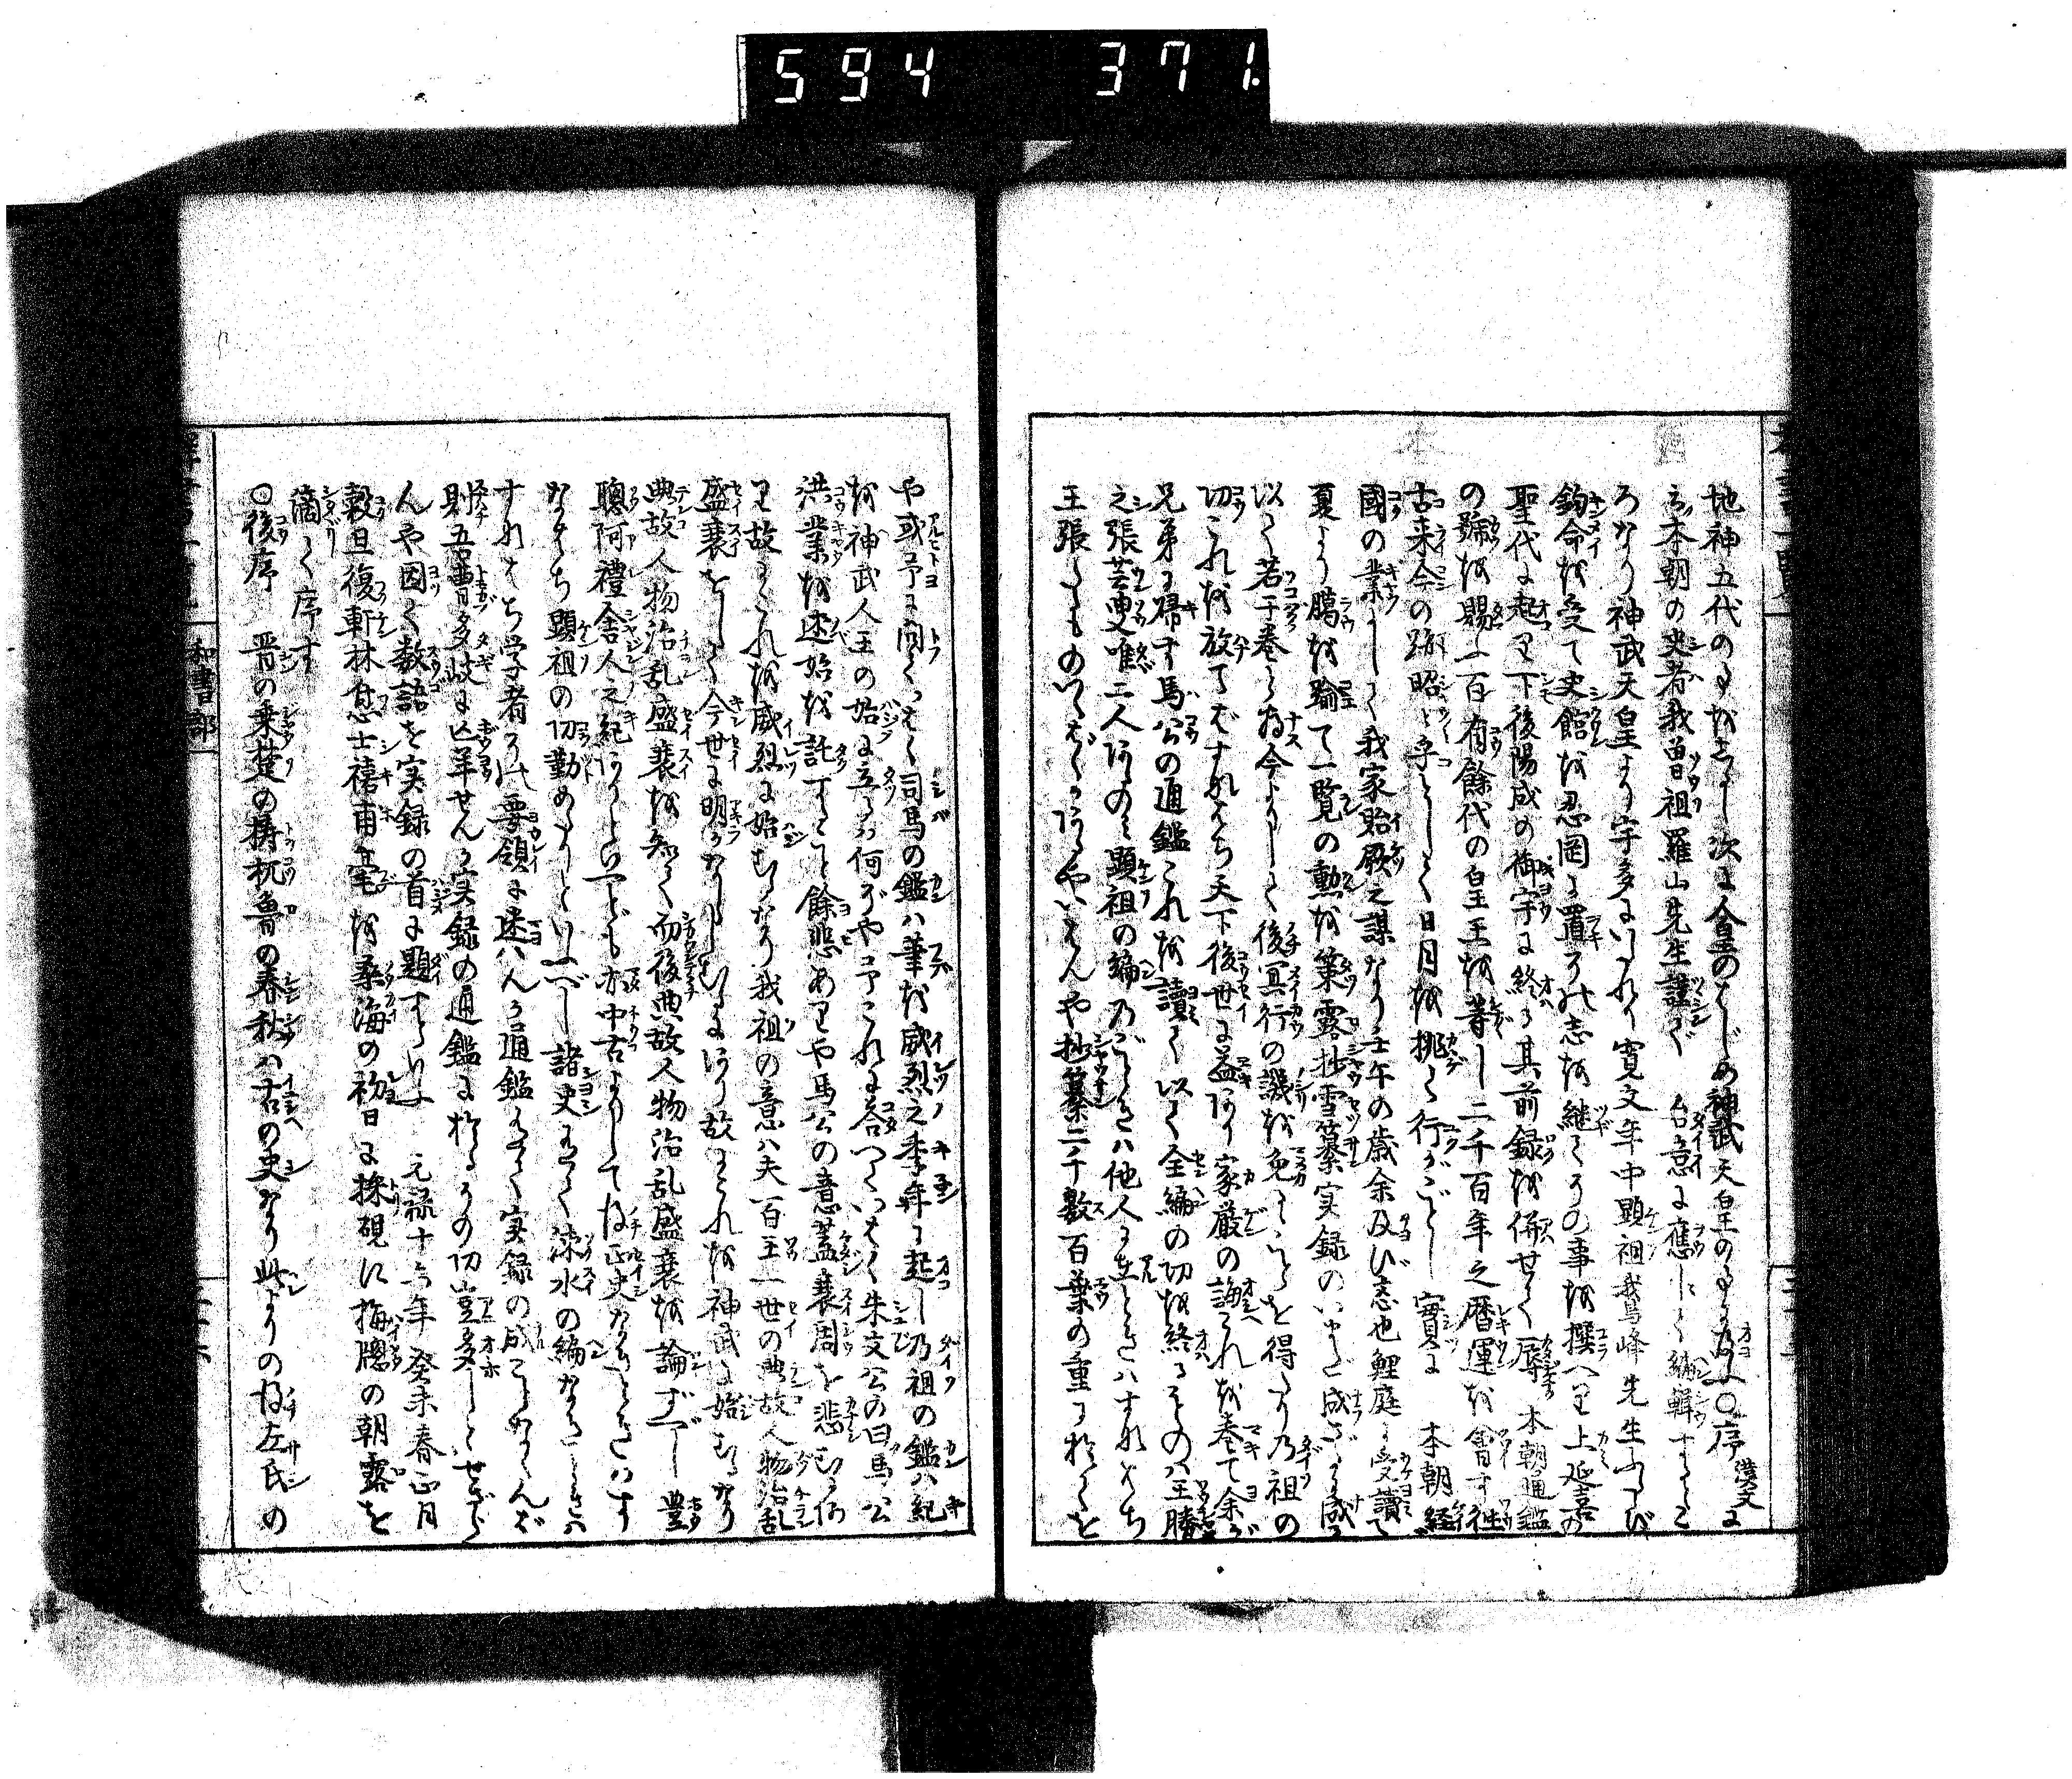 594 371.
地神五代の事をしるし次に合壱のはじめ神武天皇の事に及ふ〇序 漢文に
云本朝の史者我曽祖羅山先生謹で 台意に應じく編輯すること
ろなり神武天皇より宇多にいたれり寛文年中顕祖我鵞峰先生ふたゝび
鈞命を受て史館を忍岡に置その志を継くその事を撰へり上延喜の
聖代に起り下後陽成の御宇に終る其前録を併せく辱 本朝通鑑
の号を賜ふ一百有餘代の皇王を等し二千百年之暦運を會す往
古来今の跡昭〻乎として日月を挑く行がごとし寔に 本朝経
國の業にして我家貽厥之謀なり壬午の歳余及び悫也鯉庭に受讀て
夏より臈を踰て一覧の勲を策露抄雪纂実録のいまだ成ざるを
以く若干巻と為今よりして後冥行の譏を免ることを得たり乃祖の
功これを放てばすなはち天下後世に益あり家厳の誨これを巻て余が
兄弟に帰す馬公の通鑑これを讀く以く全編の功を終るものハ王勝
之張芸叟唯二人あるのミ顕祖の編乃ごときハ他人に在ときハすなはち
王張たるものいくばくかあらんやいはんや抄纂二千数百葉の重に於てを
や或予に問ていはく司馬の鑑ハ筆を威烈之季年に起し乃祖の鑑ハ紀
を神武人王の始に立るハ何ぞや予これに答ていはく朱文公の曰馬公
洪業を述始を託すること餘悲ありや馬公の意蓋衰周を悲むか何
り故にこれを威烈に始むるなり我祖の意ハ夫一百王一世の典故人物治乱
盛衰をして今世に明かならしむるにあり故にこれを神武に始むるなり
典故人物治乱盛衰を知く而後典故人物治乱盛衰を論ずべし豊
聡阿禮舎人之紀ありといへども亦中古よりして後正史なきときハす
なはち顕祖の功勤めりといふべし諸史有て涑水の編なきときハ
すなはち学者その要領に迷ハんか通鑑有て実録の成ことなからんば
則吾曹多岐に亡羊せんか実録の通鑑に於るその功豈多しとせざら
んや因て数語を実録の首に題すといふ 元禄十六年癸未春正月
穀旦復軒林悫士禧甫毫を桑海の初日に採硯に梅牕の朝露を
滴く序す
〇後序 晋の乗楚の梼杌魯の春秋ハ古の史なり此よりの後左氏の
和書部